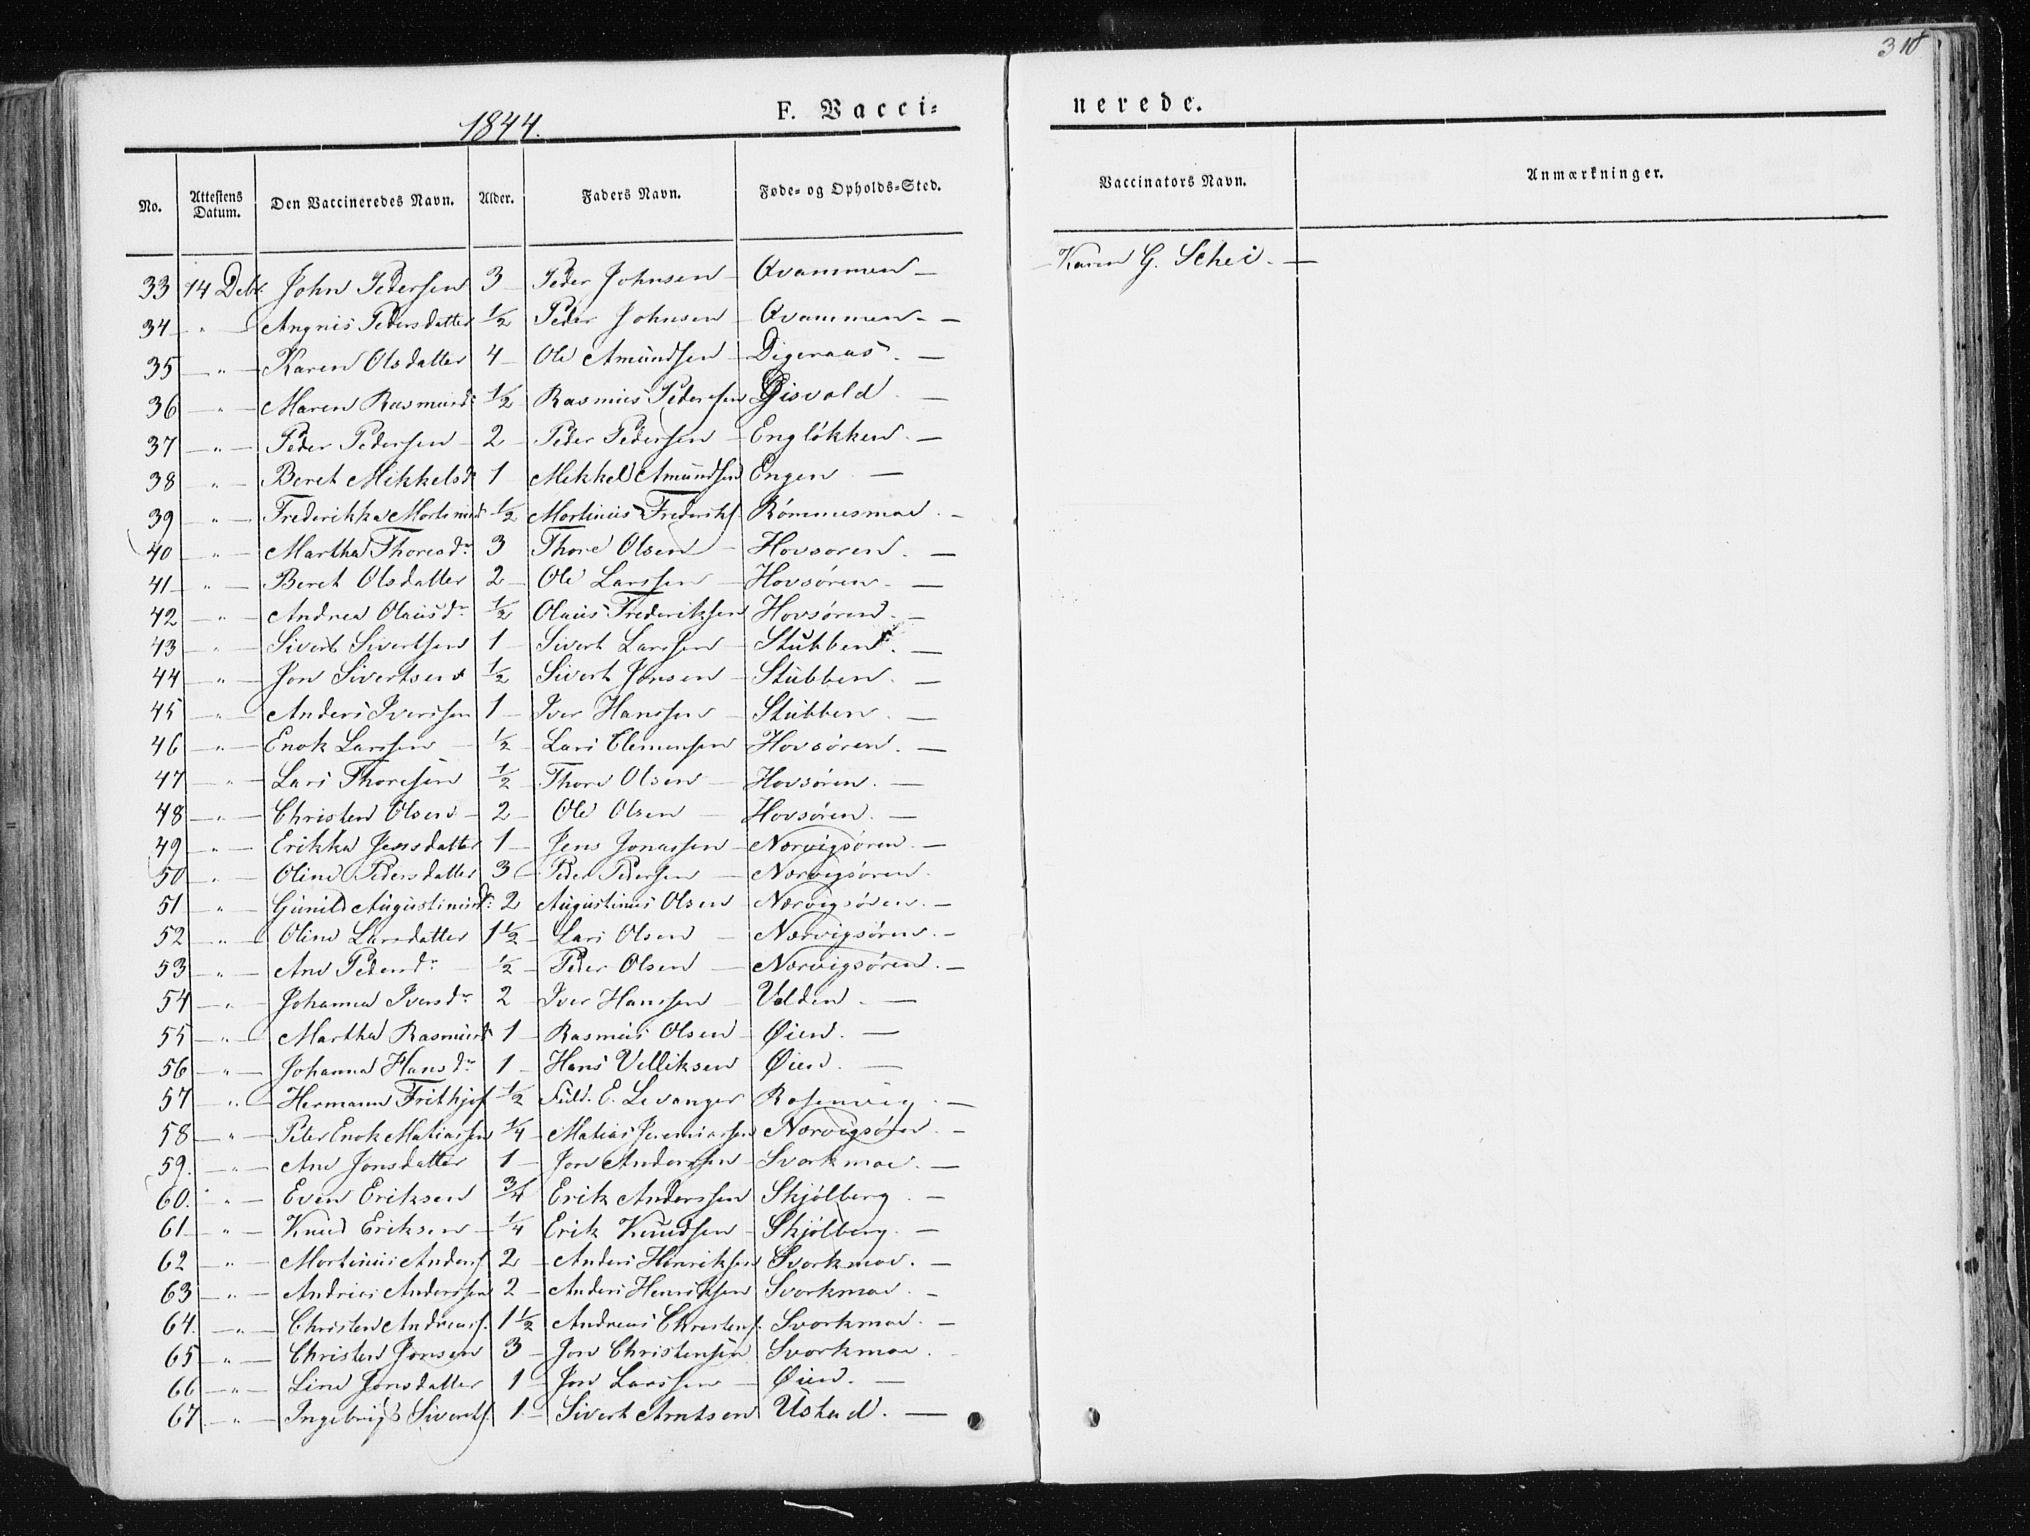 310
1844.
F. Vacci-
nerede.
No. Attestens Datum. Den Vaccineredes Navn. Alder. Faders Navn. Føde- og Opholds-Sted. Vaccinators Navn. Anmærkninger.
33 14 Debr. John Pedersen 3 Peder Johnsen Qvammen Karen G. Schei.
34 " Angnis Pedersdatter 1/2 Peder Johnsen Qvammen
35 " Karen Olsdatter 4 Ole Amundsen Digeraas
36 " Maren Rasmusd: 1/2 Rasmus Pedersen Gisvold
37 " Peder Pedersen 2 Peder Pedersen Engløkken
38 " Beret Mikkelsd: 1 Mikkel Amundsen Engen
39 " Frederikka Martinusd: 1/2 Martinus Frederiks. Rømmesmoe
40 " Martha Thoresdr 3 Thore Olsen Hovsøren
41 " Beret Olsdatter 2 Ole Larssen Hovsøren
42 " Andrea Olausdr 1/2 Olaus Frederiksen Hovsøren
43 " Sivert Sivertsen 1 Sivert Larssen Stubben
44 " Jon Sivertsen 1/2 Sivert Jonsen Stubben
45 " Anders Iverssen 1 Iver Hanssen Stubben
46 " Enok Larssen 1/2 Lars Clemensen Hovsøren
47 " Lars Thoresen 1/2 Thore Olsen Hovsøren
48 " Christen Olsen 2 Ole Olsen Hovsøren
49 " Erikka Jensdatter 1 Jens Jonassen Nærvigsøren
50 " Oline Pedersdatter 3 Peder Pedersen Nærvigsøren
51 " Gunild Augustinusd: 2 Augustinus Olsen Nærvigsøren
52 " Oline Larsdatter 1 1/2 Lars Olsen Nærvigsøren
53 " Ane Pedersdr 1/2 Peder Olsen Nærvigsøren
54 " Johanna Iversdr 2 Iver Hanssen Volden
55 " Martha Rasmusd 1 Rasmus Olsen Øien
56 " Johanna Hansdr 1 Hans Velliksen Øien
57 " Hermann Frithjof 1/2 E. Levanger Rosenvig
58 " Peter Enok Matiassen 1/4 Matias Jeremiassen Nærvigsøren
59. " Ane Jonsdatter 1 Jon Anderssen Svorkmoe
60. " Even Eriksen 3/4 Erik Anderssen Skjølberg
61 " Knud Eriksen 1/4 Erik Knudsen Skjølberg
62 " Martinus Anders. 2 Anders Henriksen Svorkmoe
63 " Andreas Anderssen 2 Anders Henriksen Svorkmoe
64. " Christen Andreas. 1 1/2 Andreas Christens. Svorkmoe
65 " Christen Jonsen 3 Jon Christensen Svorkmoe
66 " Line Jonsdatter 1 Jon Larssen Øien
67 " Ingebrigt Siverts. 1 Sivert Arntsen Ustad